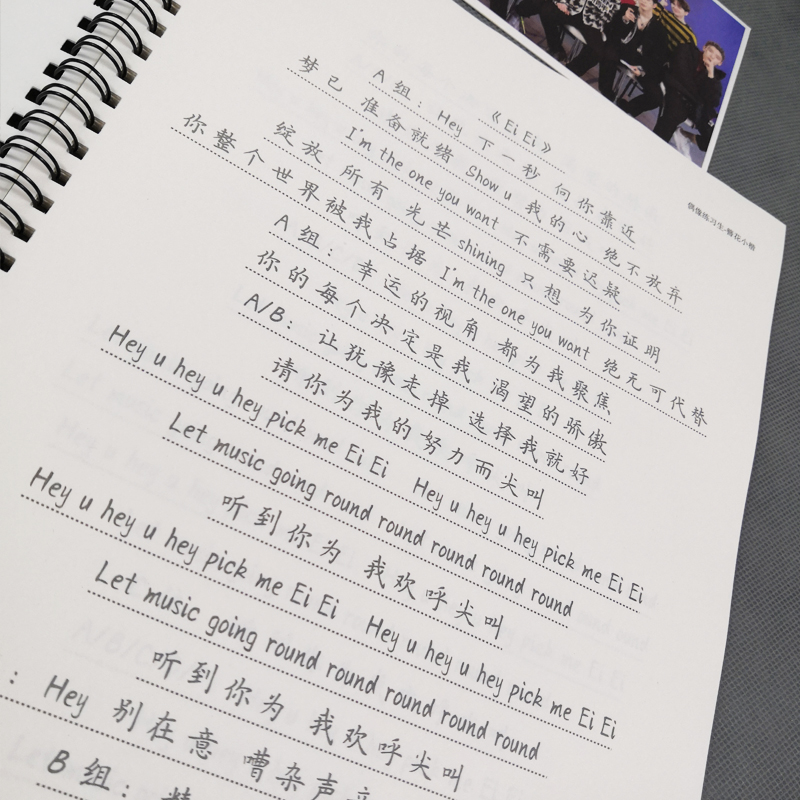 偶像练习生·簪花小楷
《Ei Ei》
A组：Hey 下一秒 向你靠近
梦已 准备就绪 Show u 我的心 绝不放弃
I'm the one you want 不需要迟疑
绽放 所有 光芒shining 只想 为你证明
你整个世界被我占据 I'm the one you want 绝无可代替
A组：幸运的视角 都为我聚焦
你的每个决定是我 渴望的骄傲
A/B：让犹豫走掉 选择我就好
请你为我的努力而尖叫
Hey u hey u hey pick me Ei Ei Hey u hey u hey pick me Ei Ei
Let music going round round round round round
听到你为 我欢呼尖叫
Hey u hey u hey pick me Ei Ei Hey u hey u hey pick me Ei Ei
Let music going round round round round round
听到你为 我欢呼尖叫
：Hey 别在意 嘈杂声音
B组：